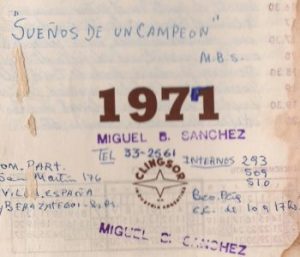 "SUEÑOS DE UN CAMPEON"
M.B.S.
1971
MIGUEL B. SANCHEZ
TEL 33-2561 INTERNOS 293
509
510
DOM. PART.
San Martín 176
VILLA ESPAÑA
BERAZATEGUI - Bs. As.
CLINGSOR
INDUSTRIA ARGENTINA
Bco. Pcia
de 10 a 17 hs.
MIGUEL B. SANCHEZ